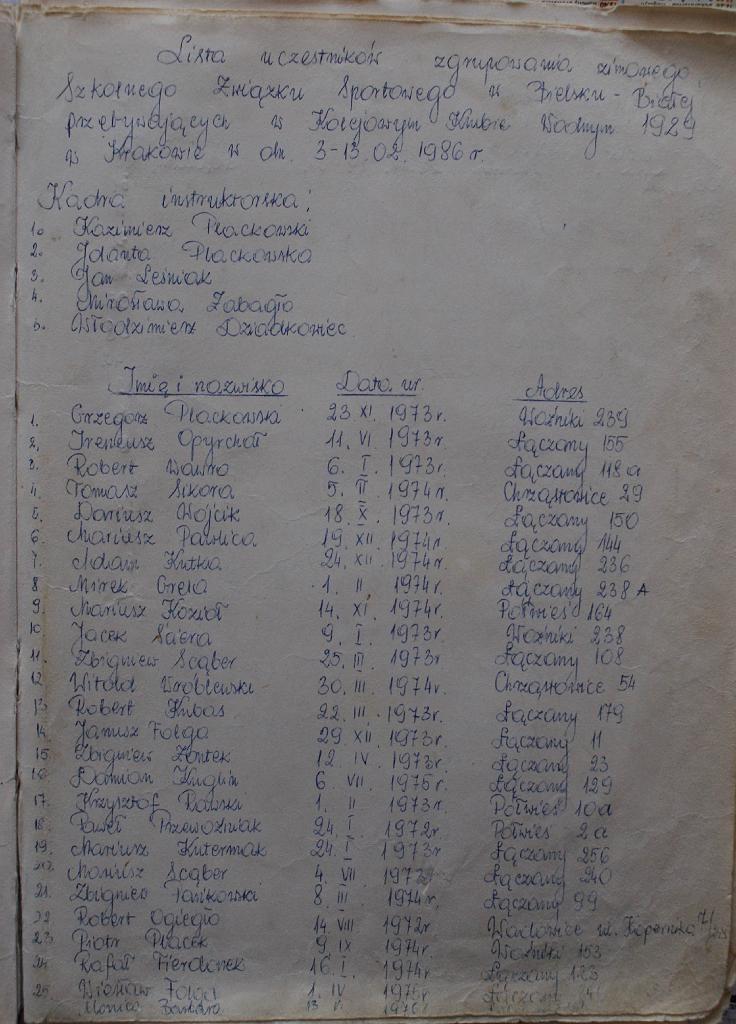 Lista uczestników zgrupowania zimowego
Szkolnego Związku Sportowego w Bielsku-Białej
przebywających w Kolejowym Klubie Wodnym 1929
w Krakowie w dn. 3-13.02.1986r.
Kadra instruktorska:
1. Kazimierz Płackowski
2. Jolanta Płackowska
3. Jan Leśniak
4. Mirosława Zabagło
5. Włodzimierz Dziadkowiec
Imię i nazwisko Data ur. Adres
1. Grzegorz Płackowski 23 XI. 1973r. Woźniki 239
2. Ireneusz Opyrchał 11. VI 1973r. Łączany 155
3. Robert Wawro 6. I. 1973r. Łączany 118a
4. Tomasz Sikora 5. II 1974r. Chrząstowice 29
5. Dariusz Wójcik 18. X. 1973r. Łączany 150
6. Mariusz Pawlica 19. XII 1974r. Łączany 144
7. Adam Kutka 24. XII 1974r. Łączany 236
8 Mirek Grela 1. II 1974r. Łączany 238A
9. Mariusz Kozioł 14. XI. 1974r. Półwieś 164
10 Jacek 9. I. 1973r. Woźniki 238
11. Zbigniew Scąber 25. III 1973r Łączany 108
12 Witold Wróblewski 30. III. 1974r. Chrząstowice 54
13 Robert Kubas 22. III. 1973r. Łączany 179
14. Janusz Folga 29 XII 1973r. Łączany 11
15. Zbigniew Żontek 12. IV. 1973r. Łączany 23
16 Damian 6. VII. 1975r. Łączany 129
17. Krzysztof Rawski 1. II 1973r. Półwieś 10a
18. Paweł Przewoźniak 24. I. 1972r. Półwieś 2a
19. Mariusz Kuternak 24. I 1973r Łączany 256
Mariusz Scąber 4. VII 1973r Łączany 240
21. Zbigniew 8. III 1974r. Łączany 99
22 Robert Ogiegło 14. VIII 1972r. Wadowice ul. Kopernika
23 Piotr Płacek 9 IX 1974r. Woźniki 153
24. Rafał Fierdonek 16. I. 1974r. Łączany
25 Wiesław Folga 1. IV 1975r. Łączany
Monica Barbara